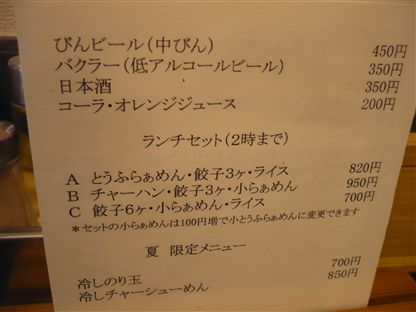 びんビール(中びん) 450円
バクラー(低アルコールビール) 350円
日本酒 350円
コーラ・オレンジジュース 200円
ランチセット(2時まで)
A とうふらぁめん・餃子3ヶ・ライス 820円
B チャーハン・餃子3ヶ・小らぁめん 950円
C 餃子6ヶ・小らぁめん・ライス 700円
*セットの小らぁめんは100円増で小とうふらぁめんに変更できます
夏 限定メニュー
冷しのり玉 700円
冷しチャーシューめん 850円